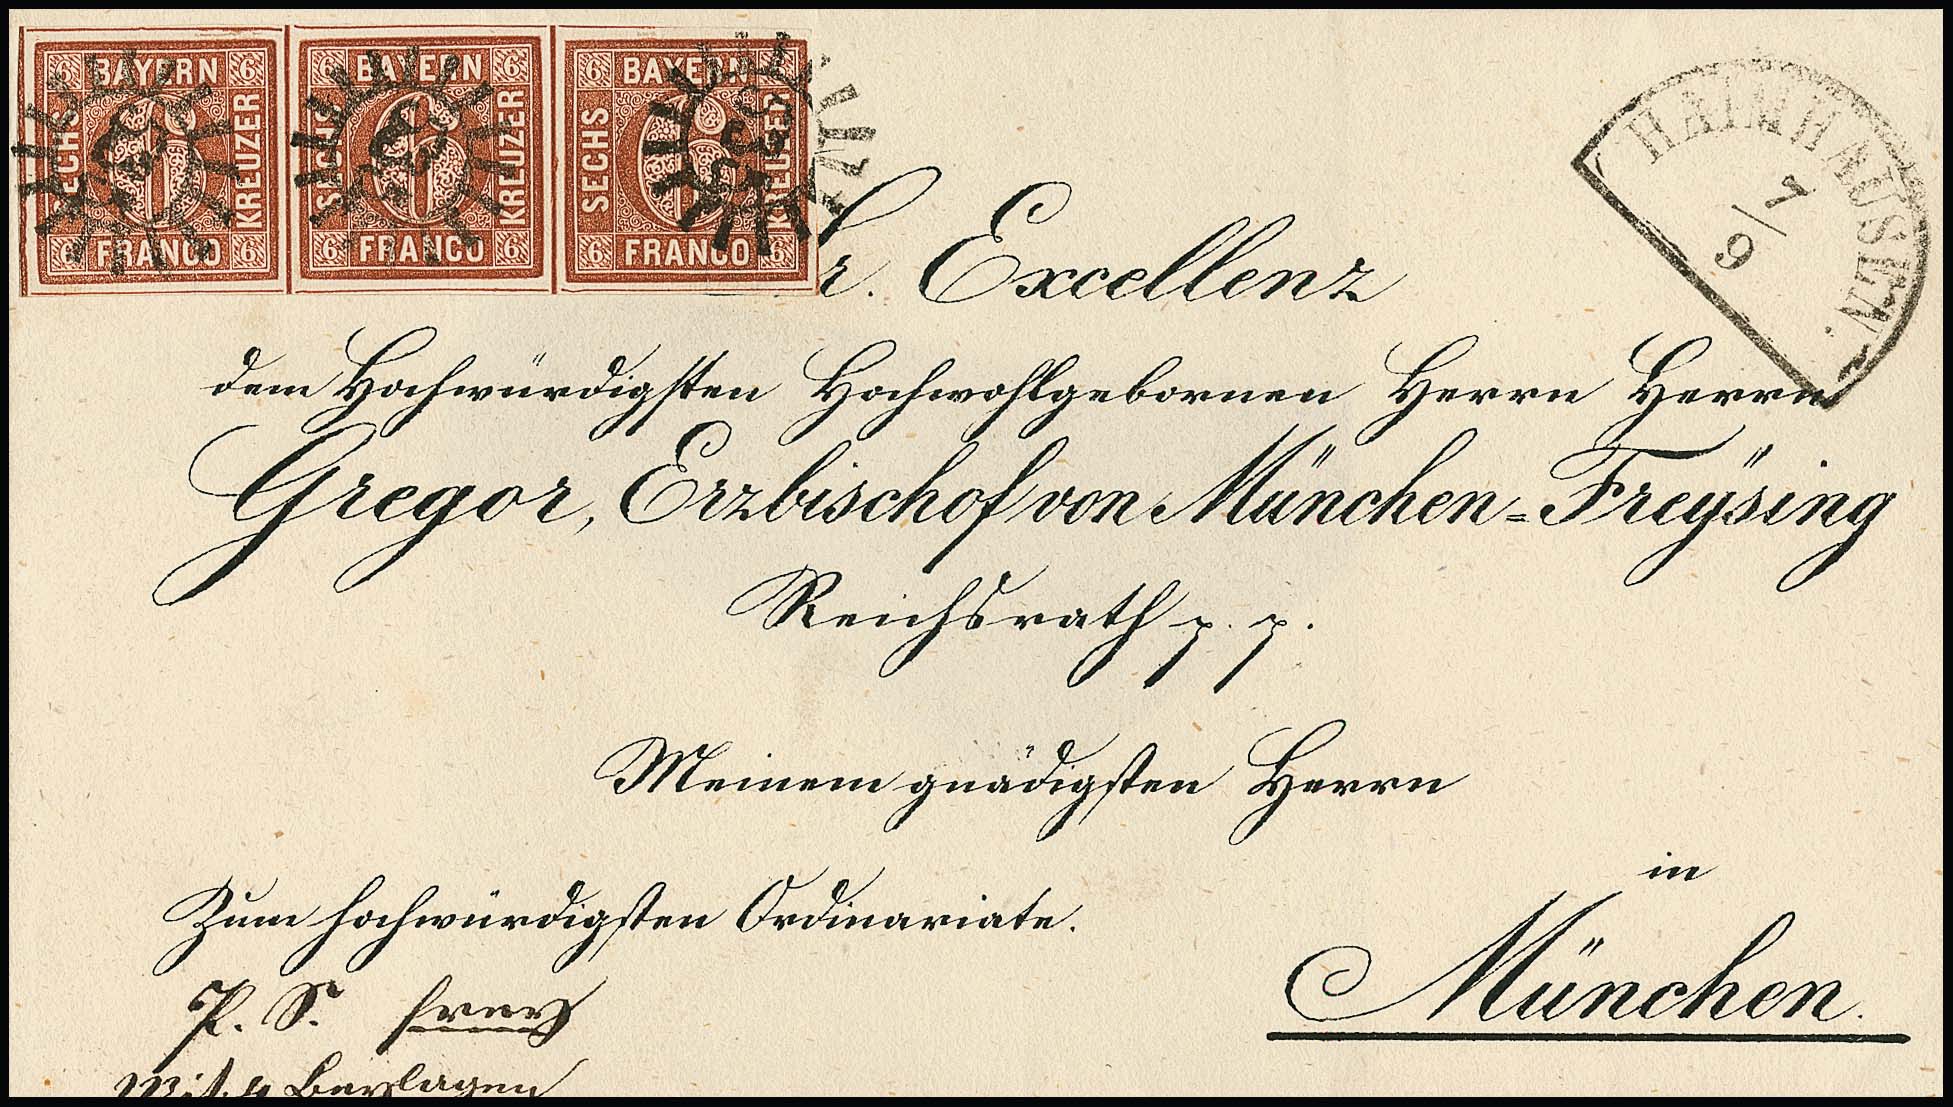 6 BAYERN 6 6 BAYERN 6 6 BAYERN 6
SECHS KREUZER SECHS KREUZER SECHS KREUZER
6 6 6
6 FRANCO 6 6 FRANCO 6 6 FRANCO 6
HAIMHAUSEN.
7/9
r. Excellenz
dem Hochwürdigsten Hochwohlgebornen Herrn Herrn
Gregor, Erzbischof von München=Freÿsing
Reichsrath p. p.
Meinem gnädigsten Herrn
Zum hochwürdigsten Ordinariate.
in
München.
P. S. frey
Mit 4 Beylagen